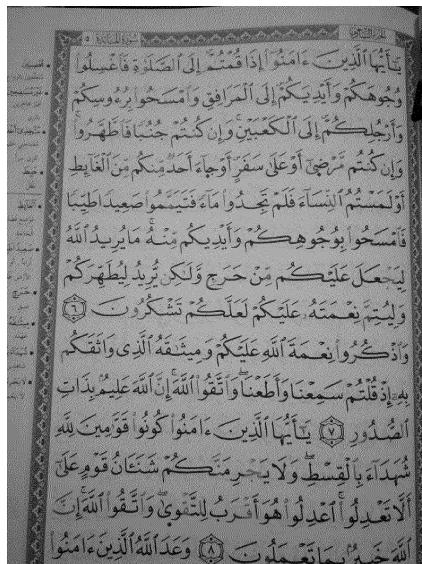 الجزء السادس سورة المائدة ٥
يَٰٓأَيُّهَا ٱلَّذِينَ ءَامَنُوٓا۟ إِذَا قُمْتُمْ إِلَى ٱلصَّلَوٰةِ فَٱغْسِلُوا۟
وُجُوهَكُمْ وَأَيْدِيَكُمْ إِلَى ٱلْمَرَافِقِ وَٱمْسَحُوا۟ بِرُءُوسِكُمْ
وَأَرْجُلَكُمْ إِلَى ٱلْكَعْبَيْنِ ۚ وَإِن كُنتُمْ جُنُبًا فَٱطَّهَّرُوا۟ ۚ
وَإِن كُنتُم مَّرْضَىٰٓ أَوْ عَلَىٰ سَفَرٍ أَوْ جَآءَ أَحَدٌ مِّنكُم مِّنَ ٱلْغَآئِطِ
أَوْ لَٰمَسْتُمُ ٱلنِّسَآءَ فَلَمْ تَجِدُوا۟ مَآءً فَتَيَمَّمُوا۟ صَعِيدًا طَيِّبًا
فَٱمْسَحُوا۟ بِوُجُوهِكُمْ وَأَيْدِيكُم مِّنْهُ ۚ مَا يُرِيدُ ٱللَّهُ
لِيَجْعَلَ عَلَيْكُم مِّنْ حَرَجٍ وَلَٰكِن يُرِيدُ لِيُطَهِّرَكُمْ
وَلِيُتِمَّ نِعْمَتَهُۥ عَلَيْكُمْ لَعَلَّكُمْ تَشْكُرُونَ ٦
وَٱذْكُرُوا۟ نِعْمَةَ ٱللَّهِ عَلَيْكُمْ وَمِيثَٰقَهُ ٱلَّذِى وَاثَقَكُم
بِهِۦٓ إِذْ قُلْتُمْ سَمِعْنَا وَأَطَعْنَا ۖ وَٱتَّقُوا۟ ٱللَّهَ ۚ إِنَّ ٱللَّهَ عَلِيمٌۢ بِذَاتِ
ٱلصُّدُورِ ٧ يَٰٓأَيُّهَا ٱلَّذِينَ ءَامَنُوا۟ كُونُوا۟ قَوَّٰمِينَ لِلَّهِ
شُهَدَآءَ بِٱلْقِسْطِ ۖ وَلَا يَجْرِمَنَّكُمْ شَنَـَٔانُ قَوْمٍ عَلَىٰٓ
أَلَّا تَعْدِلُوا۟ ۚ ٱعْدِلُوا۟ هُوَ أَقْرَبُ لِلتَّقْوَىٰ ۖ وَٱتَّقُوا۟ ٱللَّهَ ۚ إِنَّ
ٱللَّهَ خَبِيرٌۢ بِمَا تَعْمَلُونَ ٨ وَعَدَ ٱللَّهُ ٱلَّذِينَ ءَامَنُوا۟